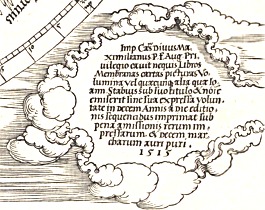 Imp Cæs Diuus Ma
ximilianus P. F. Aug. Pri
uilegio cauit nequis Libros
Membranas cartas picturas Vo
lumina vel quæcunq; alia quæ Io
ann Stabius sub suo titulo & noie
emiserit sine sua expressa volun
tate in decem Annis a die editio
nis sequencibus imprimat sub
pena amissionis rerum im
pressarum & decem mar
charum auri puri .
1515